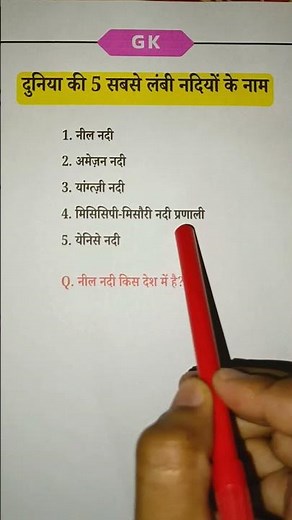 GK
दुनिया की 5 सबसे लंबी नदियों के नाम
1. नील नदी
2. अमेज़न नदी
3. यांग्त्ज़ी नदी
4. मिसिसिपी-मिसौरी नदी प्रणाली
5. येनिसे नदी
Q. नील नदी किस देश में है?